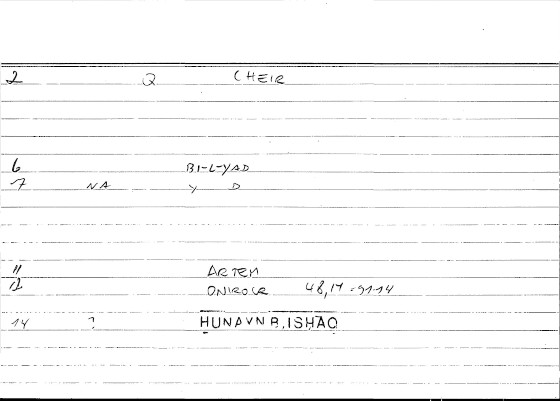 2 Q CHEIR
6 BI-L-YAD
7 NA Y D
11 ARTEM
12 ONIROCR 48,17 = 91.14
14 ? HUNAYN B, ISHAQ